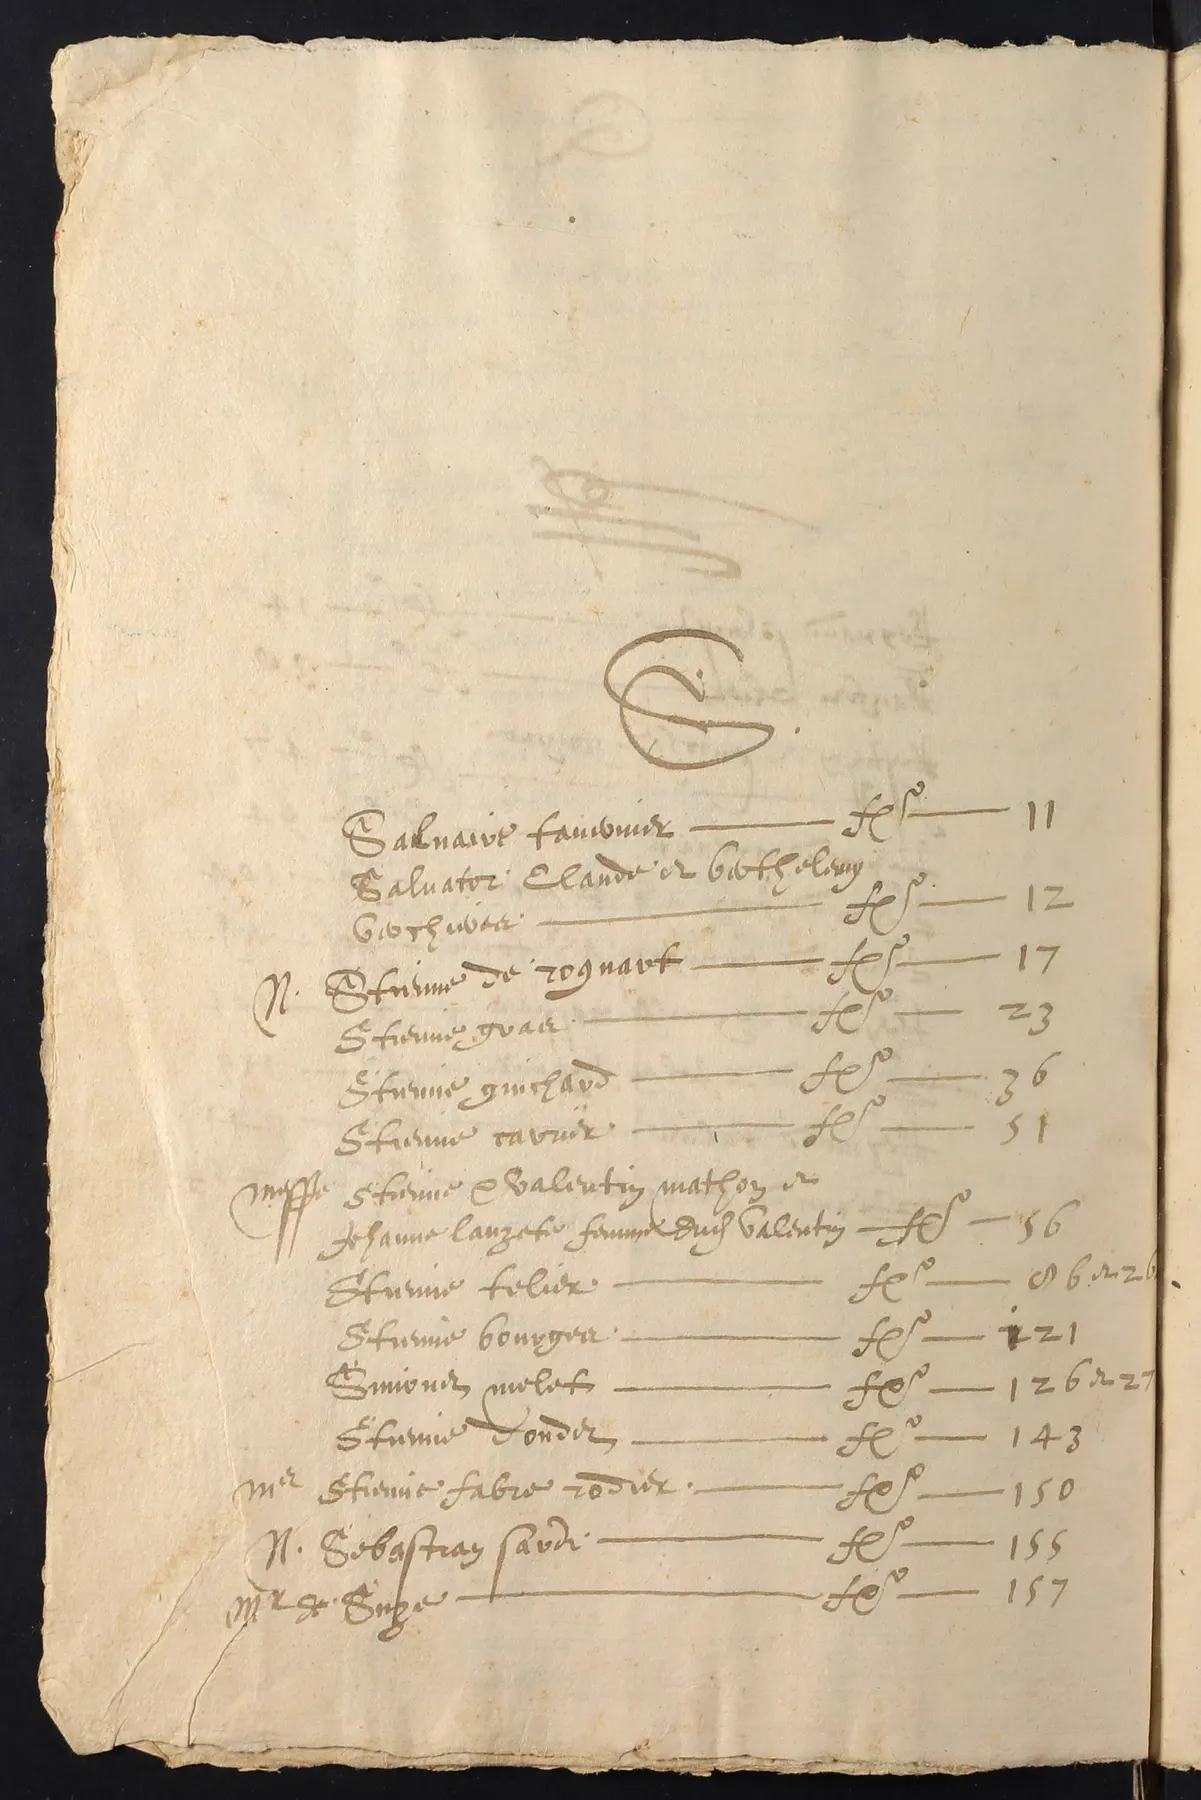 S.
Salvaire tavernier — f° — 11
Salvator Claude et berthelemy
berchiver — f° — 12
N. Stienne de roquart — f° — 17
Stienne graer — f° — 23
Stienne guichard — f° — 36
Stienne carrier — f° — 51
Messe Stienne & Valentin mathon et
Jehanne lauzete femme dud valentin — f° — 56
Stienne telier — f° — 86 et 26
Stienne bourger — f° — 121
Simonet melet — f° — 126 et 27
Stienne — f° — 143
Mer Stienne fabre rodier — f° — 150
N. Sebastian — f° — 155
Mr de Suze — f° — 157